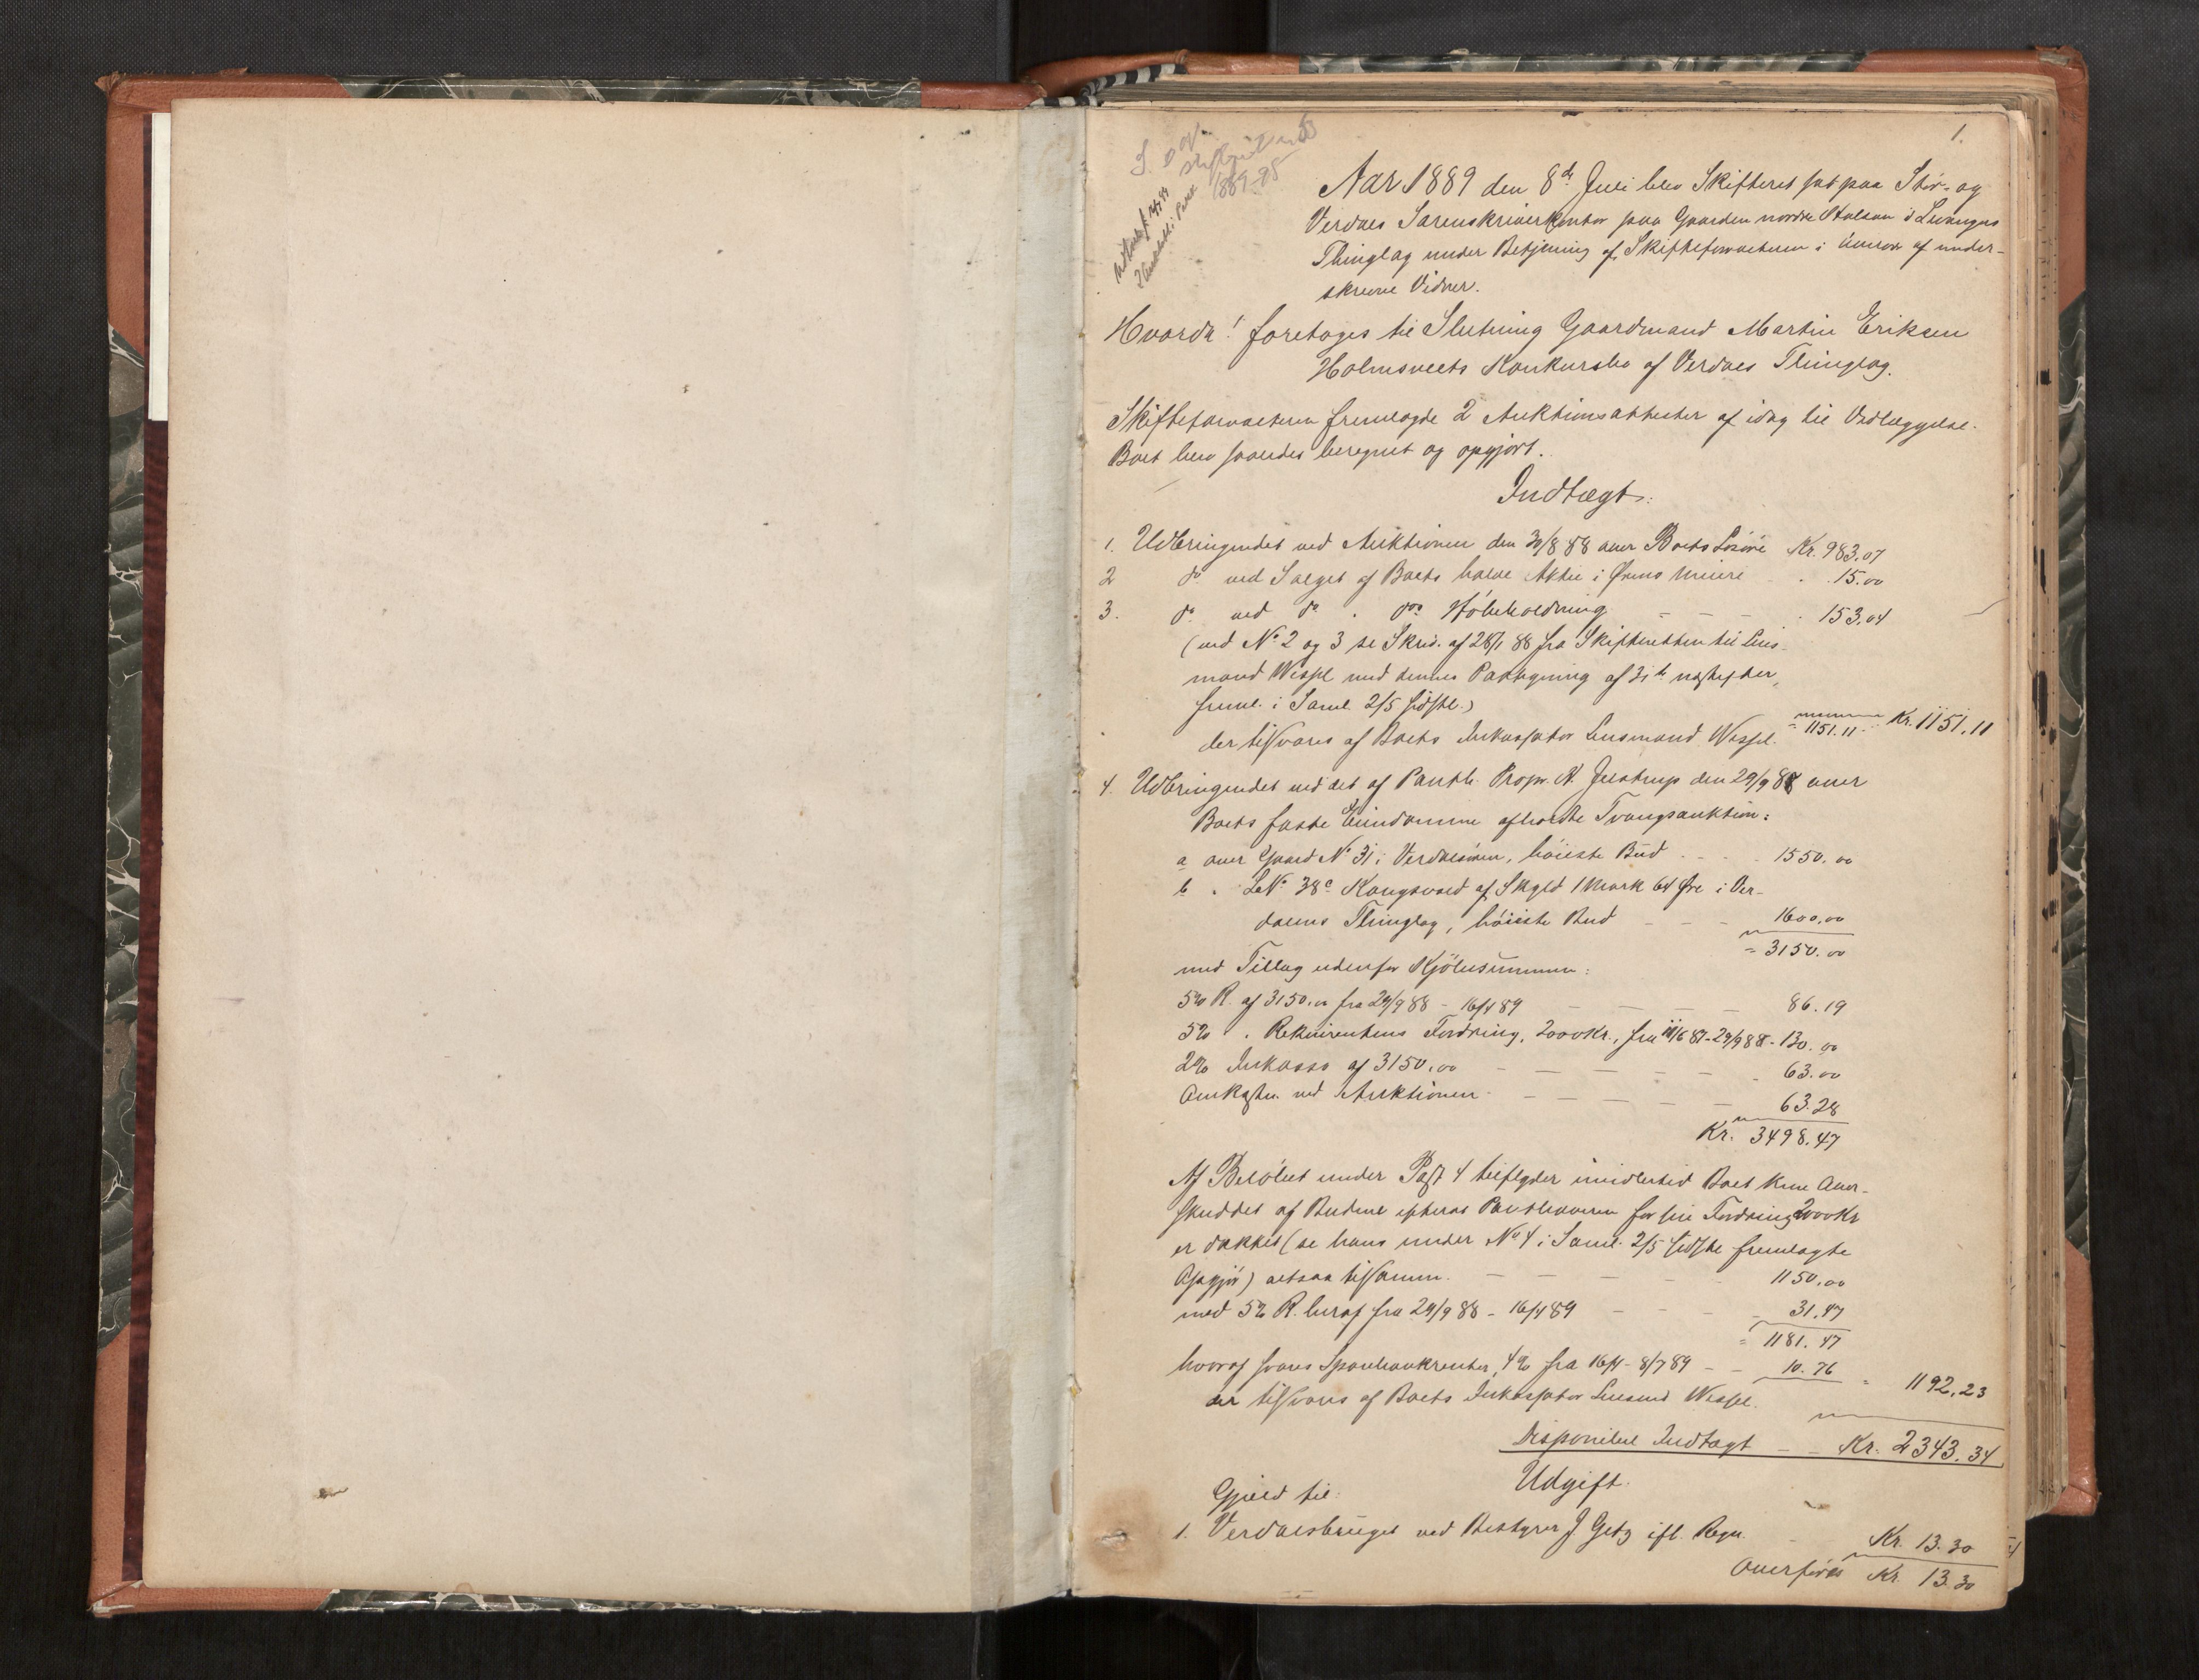 1.
1889-95
Aar 1889 den 8de Juli blev Skifteret sat paa Stør- og
Verdals Sorenskriverkontor paa Gaarden nordre Staloen i Levangers
Thinglag under Betjening af Skifteforvalteren i Overvær af under-
skrevne Vidner.
Hvorda! foretoges til Slutning Gaardmand Martin Eriksen
Holmsveets Konkursbo af Verdals Thinglag.
Skifteforvalteren fremlagde 2 Auktionsattester af idag til Vedlæggelse.
Boet blev saaledes beregnet og opgjort.
Indtægt:
1. Udbringendet ved Auktionen den 30/8 88 over Boets Løsøre Kr. 983.07
2 do ved Salget af Boets halve Aktie i Ørens Meieri - 15.00
3. do ved do . do Høbeholdning - - - 153.04
(ved No 2 og 3 se Skriv. af 28/1 88 fra Skifteretten til Lens-
mand Wessel med dennes Paategning af 31te næstefter,
freml. i Saml. 2/5 sidstl.)
der tilsvares af Boets Inkassator Lensmand Wessel. = 1151.11 - Kr. 1151.11
4. Udbringendet ved det af Panth. Propr. N. Jelstrup den 29/9 88 over
Boets faste Eiendomme afholdte Tvangsauktion:
a over Gaard No 31 i Verdalsøren, høieste Bud - - 1550.00
b . LNo 38c Kongsvold af Skyld 1 Mark 64 Øre i Ver-
dalens Thinglag, høieste Bud - - - 1600.00
= 3150.00
med Tillæg udenfor Kjøbesummen:
5% R. af 3150.00 fra 29/9 88 - 16/4 89 - - - 86.19
5% . Rekvirentens Fordring, 2000 Kr., fra 11/6 87 - 29/9 88 - 130.00
2% Inkasso af 3150.00 - - - - - 63.00
Omkostn. ved Auktionen - - - - - 63.28
Kr. 3498.47
Af Beløbet under Post 4 tilflyder imidlertid Boet kun Over-
skuddet af Budene efterat Panthaveren for sin Fordring 2000 Kr
er dækket (se hans under No 4 i Saml. 2/5 sidstl. fremlagte
Opgjør) altsaa tilsammen - - - - 1150.00
med 5% R. heraf fra 29/9 88 - 16/4 89 - - - 31.47
= 1181.47
hvoraf svares Sparebankrenter, 4% fra 16/4 - 8/7 89 - - 10.76 = 1192.23
der tilsvares af Boets Inkassator Lensmd Wessel.
Disponibel Indtægt - - Kr. 2343.34
Udgift.
Gjæld til:
1. Verdalsbruget ved Bestyrer J. Getz ifl. Regn. - Kr. 13.30
Overføres Kr. 13.30